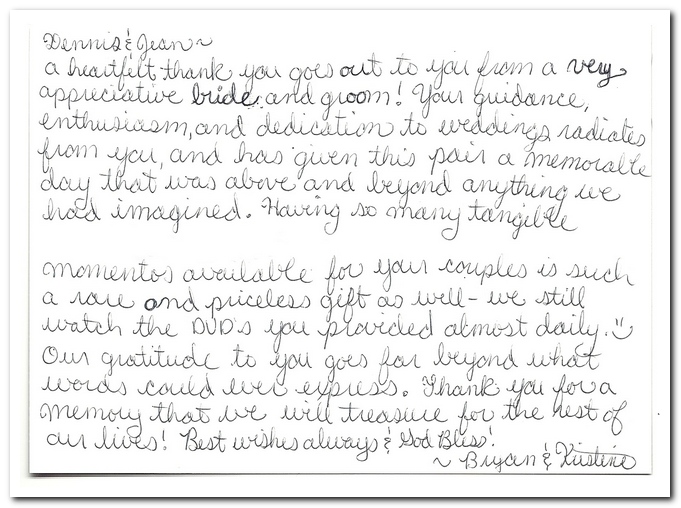 Dennis & Jean ~
a heartfelt thank you goes out to you from a very
appreciative bride, and groom! Your guidance,
enthusiasm, and dedication to weddings radiates
from you, and has given this pair a memorable
day that was above and beyond anything we
had imagined. Having so many tangible
momentos available for your couples is such
a rare and priceless gift as well - we still
watch the DVD's you provided almost daily. :)
Our gratitude to you goes far beyond what
words could ever express. Thank you for a
memory that we will treasure for the rest of
our lives! Best wishes always & God Bless!
~ Bryan & Kristine